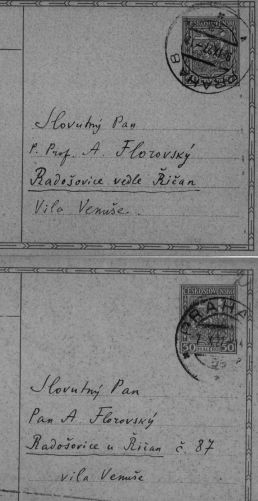 ČESKOSLOVENSKO
PRAHA 8
Slovutný Pan
P. Prof. A. Florovský
Radošovice vedle Říčan
Vila Venuše.
ČESKOSLOVENSKO
PRAHA
50 50
Slovutný Pan
Pan A Florovský
Radošovice u Říčan č. 87
vila Venuše